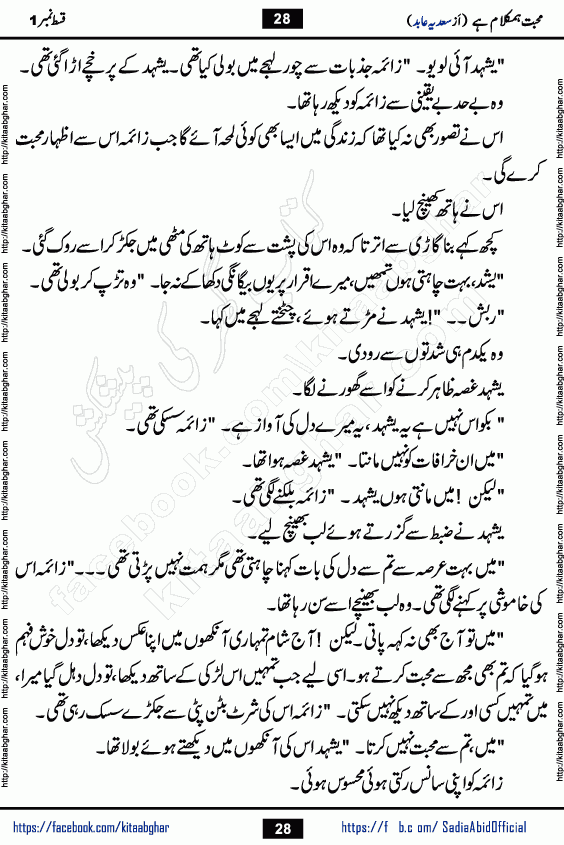 محبت ہمکلام ہے (از سعدیہ عابد) 28 قسط نمبر 1
"یشہد آئی لو یو۔ "زائمہ جذبات سے چور لہجے میں بولی کیا تھی۔ یشہد کے پر خچے اڑا گئی تھی۔
وہ بے حد بے یقینی سے زائمہ کو دیکھ رہا تھا۔
اس نے تصور بھی نہ کیا تھا کہ زندگی میں ایسا بھی کوئی لمحہ آئے گا جب زائمہ اس سے اظہار محبت
کرے گی۔
اس نے ہاتھ کھینچ لیا۔
کچھ کہے بنا گاڑی سے اترتا کہ وہ اس کی پشت سے کوٹ ہاتھ کی مٹھی میں جکڑ کر اسے روک گئی۔
"یشد، بہت چاہتی ہوں تمھیں، میرے اقرار پر یوں بیگانگی دکھا کے نہ جا۔ "وہ تڑپ کر بولی تھی۔
"ربش۔۔ "!یشہد نے مڑتے ہوئے، چٹختے لہجے میں کہا۔
وہ یکدم ہی شدتوں سے رو دی۔
یشہد غصہ ظاہر کرنے کو اسے گھورنے لگا۔
"بکواس نہیں ہے یہ یشہد، یہ میرے دل کی آواز ہے۔ "زائمہ سسکی تھی۔
"میں ان خرافات کو نہیں مانتا۔ "یشہد غصہ ہوا تھا۔
"لیکن !میں مانتی ہوں یشہد۔ "زائمہ بلکنے لگی تھی۔
یشہد نے ضبط سے گزرتے ہوئے لب بھینچ لیے۔
"میں بہت عرصہ سے تم سے دل کی بات کہنا چاہتی تھی مگر ہمت نہیں پڑتی تھی۔۔۔ "زائمہ اس
کی خاموشی پر کہنے لگی تھی۔ وہ لب بھینچے اسے سن رہا تھا۔
"میں تو آج بھی نہ کہہ پاتی۔ لیکن !آج شام تمہاری آنکھوں میں اپنا عکس دیکھا، تو دل خوش فہم
ہو گیا کہ تم بھی مجھ سے محبت کرتے ہو۔ اسی لیے جب تمہیں اس لڑکی کے ساتھ دیکھا، تو دل دہل گیا میرا،
میں تمہیں کسی اور کے ساتھ دیکھ نہیں سکتی۔ "زائمہ اس کی شرٹ بٹن پٹی سے جکڑے سسک رہی تھی۔
"میں، تم سے محبت نہیں کرتا۔ "یشہد اس کی آنکھوں میں دیکھتے ہوئے بولا تھا۔
زائمہ کو اپنی سانس رکتی ہوئی محسوس ہوئی۔
کتاب گھر کی پیشکش
facebook.com/kitaabghar
kitaabghar.com
http://kitaabghar.com http://kitaabghar.com http://kitaabghar.com http://kitaabghar.com http://kitaabghar.com http://kitaabghar.com http://kitaabghar.com http://kitaabghar.com
http://kitaabghar.com http://kitaabghar.com http://kitaabghar.com http://kitaabghar.com http://kitaabghar.com http://kitaabghar.com http://kitaabghar.com http://kitaabghar.com
https://facebook.com/kitaabghar 28 https://f b.c om/ SadiaAbidOfficial